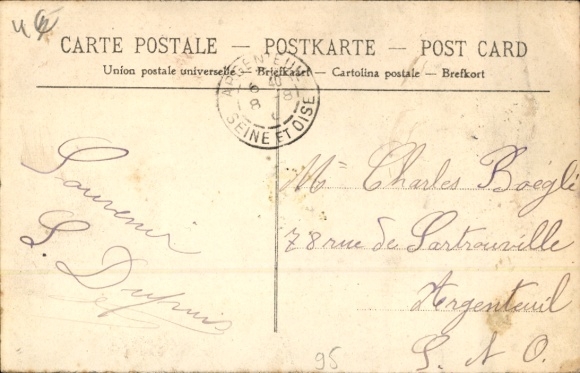 CARTE POSTALE — POSTKARTE — POST CARD
Union postale universelle — Briefkaart — Cartolina postale — Brefkort
ARGENTEUIL
6 8
SEINE ET OISE
Souvenir
L. Dupuis
Mr Charles Boéglé
78 rue de Sartrouville
Argenteuil
S. & O.
95